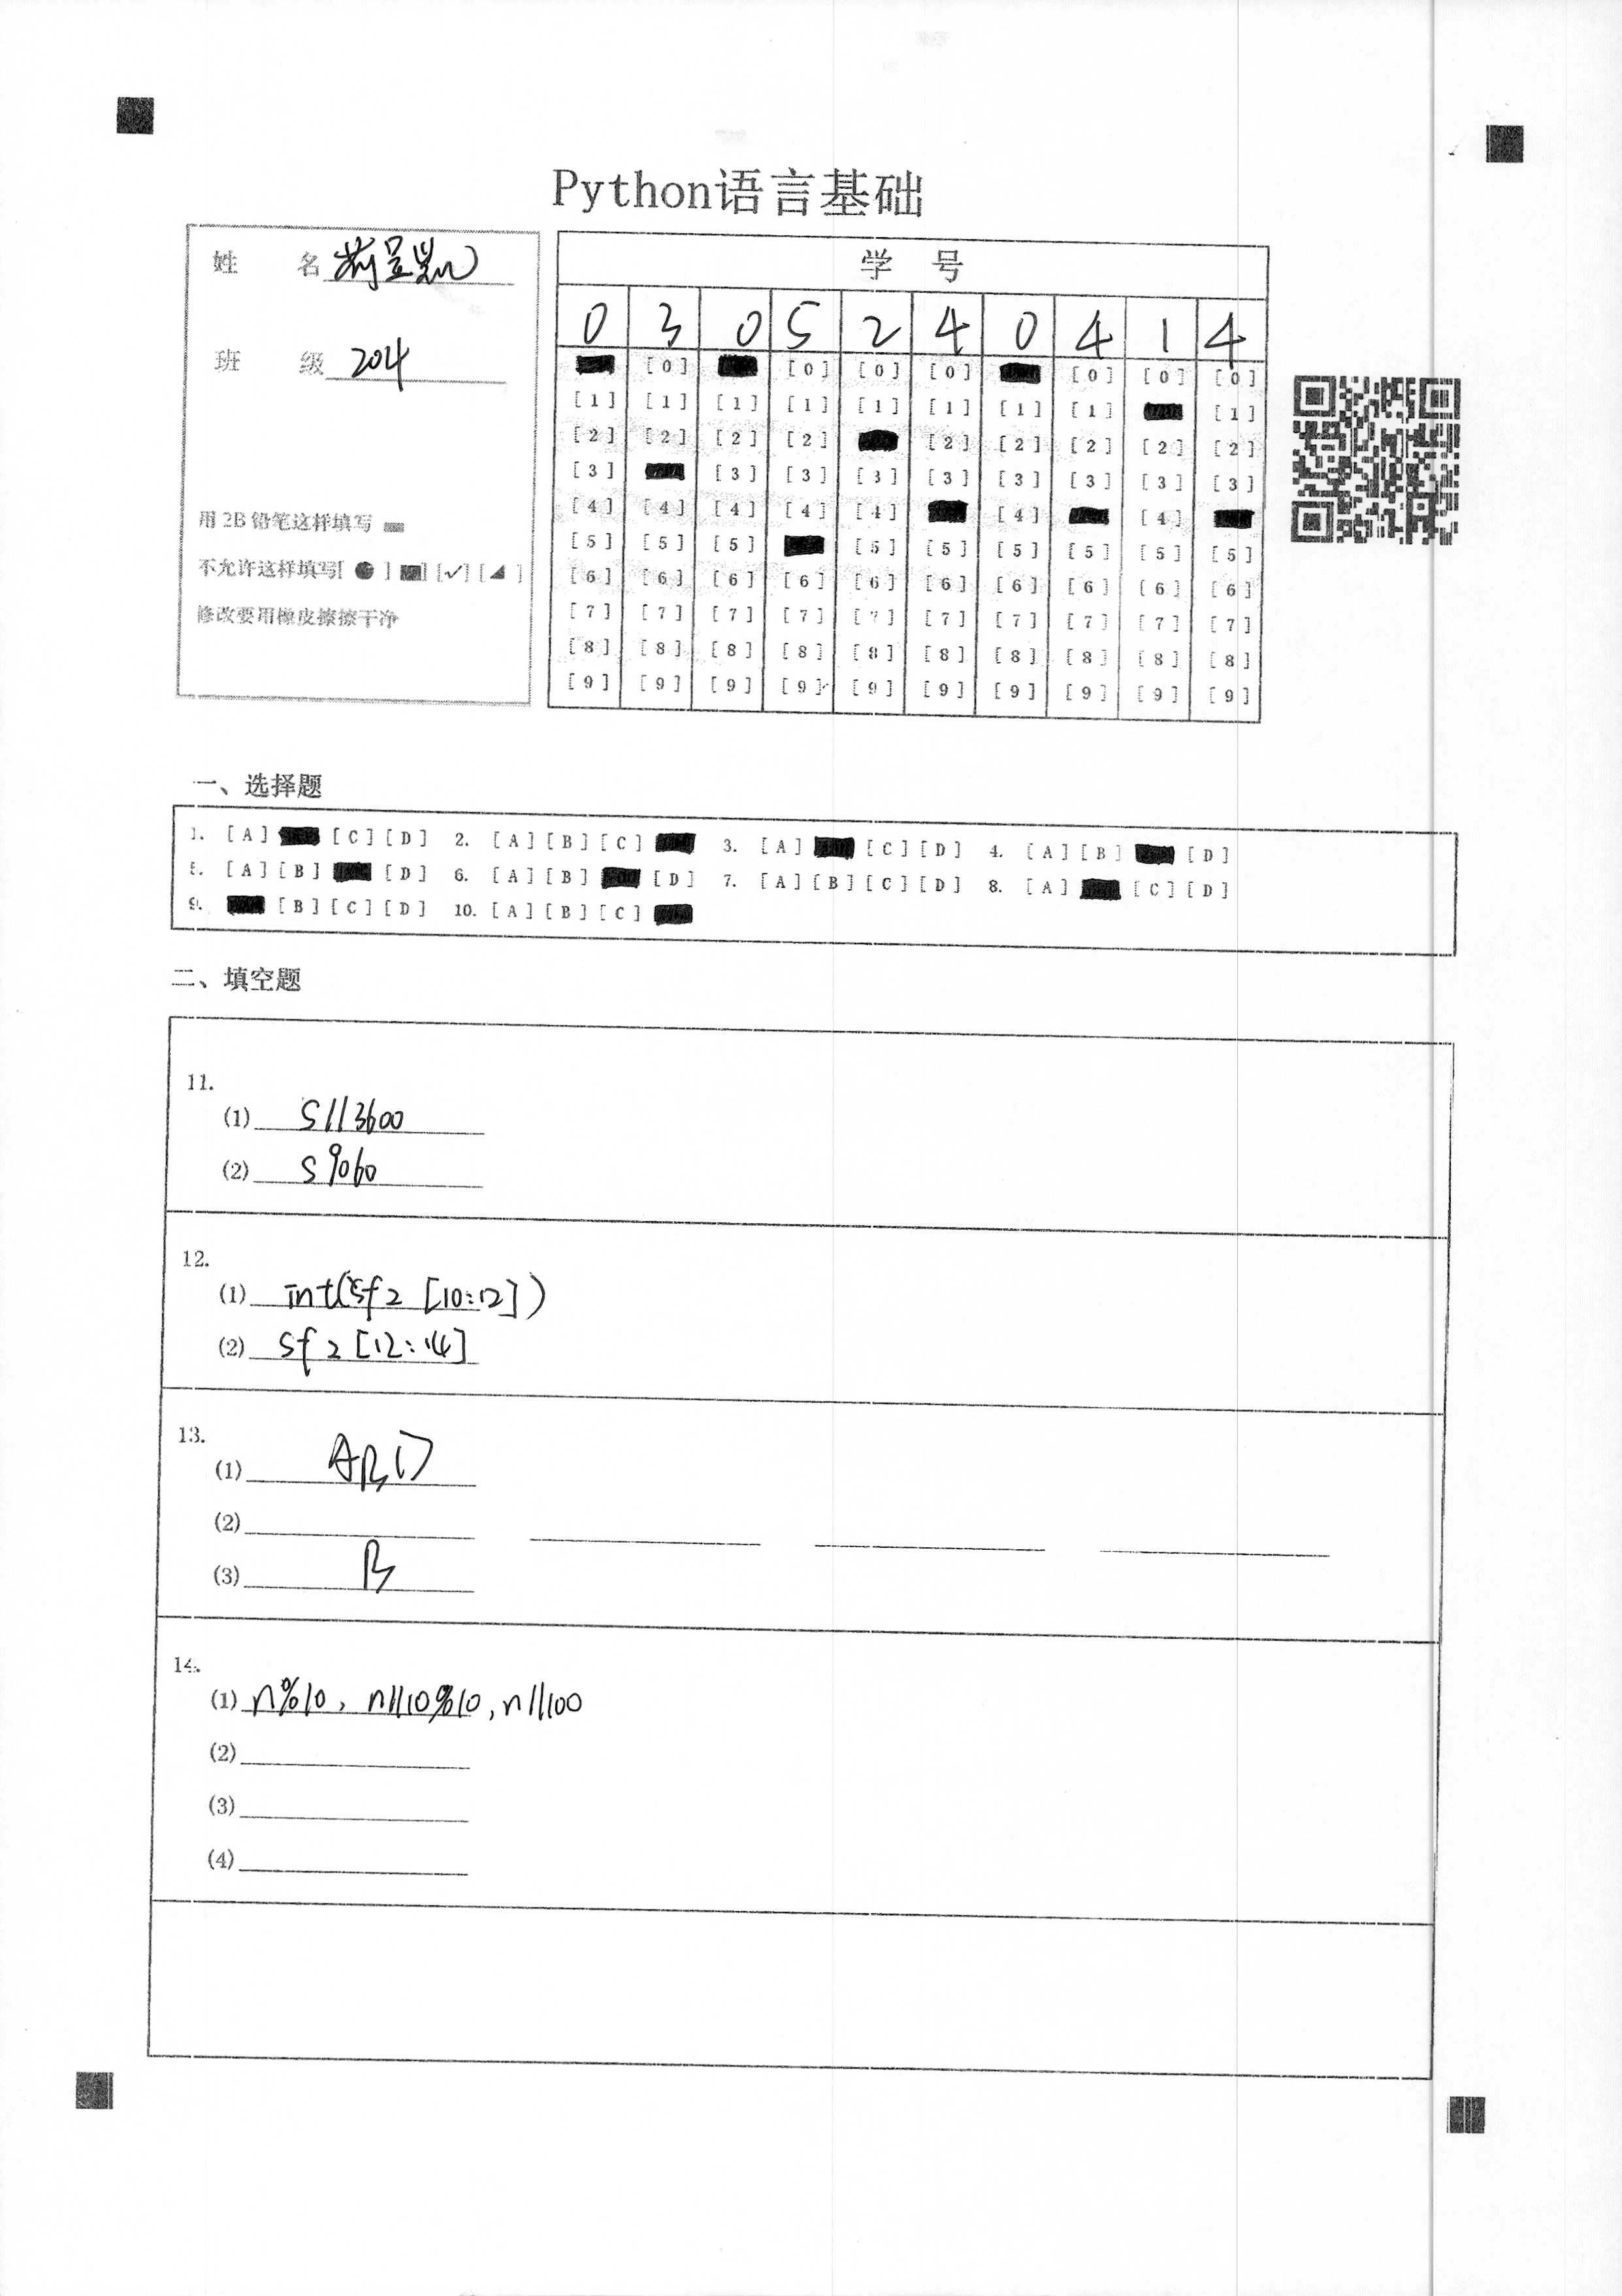 Python语言基础
姓 名
班 级 204
用 2B 铅笔这样填写
不允许这样填写[ ● ] [■] [✓] [◢ ]
修改要用橡皮擦擦干净
学 号
0 3 0 5 2 4 0 4 1 4
[0] [0] [0] [0] [0] [0] [0]
[1] [1] [1] [1] [1] [1] [1] [1] [1]
[2] [2] [2] [2] [2] [2] [2] [2] [2]
[3] [3] [3] [3] [3] [3] [3] [3] [3]
[4] [4] [4] [4] [4] [4] [4]
[5] [5] [5] [5] [5] [5] [5] [5] [5]
[6] [6] [6] [6] [6] [6] [6] [6] [6] [6]
[7] [7] [7] [7] [7] [7] [7] [7] [7] [7]
[8] [8] [8] [8] [8] [8] [8] [8] [8] [8]
[9] [9] [9] [9] [9] [9] [9] [9] [9] [9]
一、选择题
1. [A] [C] [D] 2. [A] [B] [C] 3. [A] [C] [D] 4. [A] [B] [D]
5. [A] [B] [D] 6. [A] [B] [D] 7. [A] [B] [C] [D] 8. [A] [C] [D]
9. [B] [C] [D] 10. [A] [B] [C]
二、填空题
11.
(1) s//3600
(2) s%60
12.
(1) int(sf2 [10:12])
(2) sf2[12:14]
13.
(1) ABD
(2)
(3) B
14.
(1) n%10, n//10%10, n//100
(2)
(3)
(4)